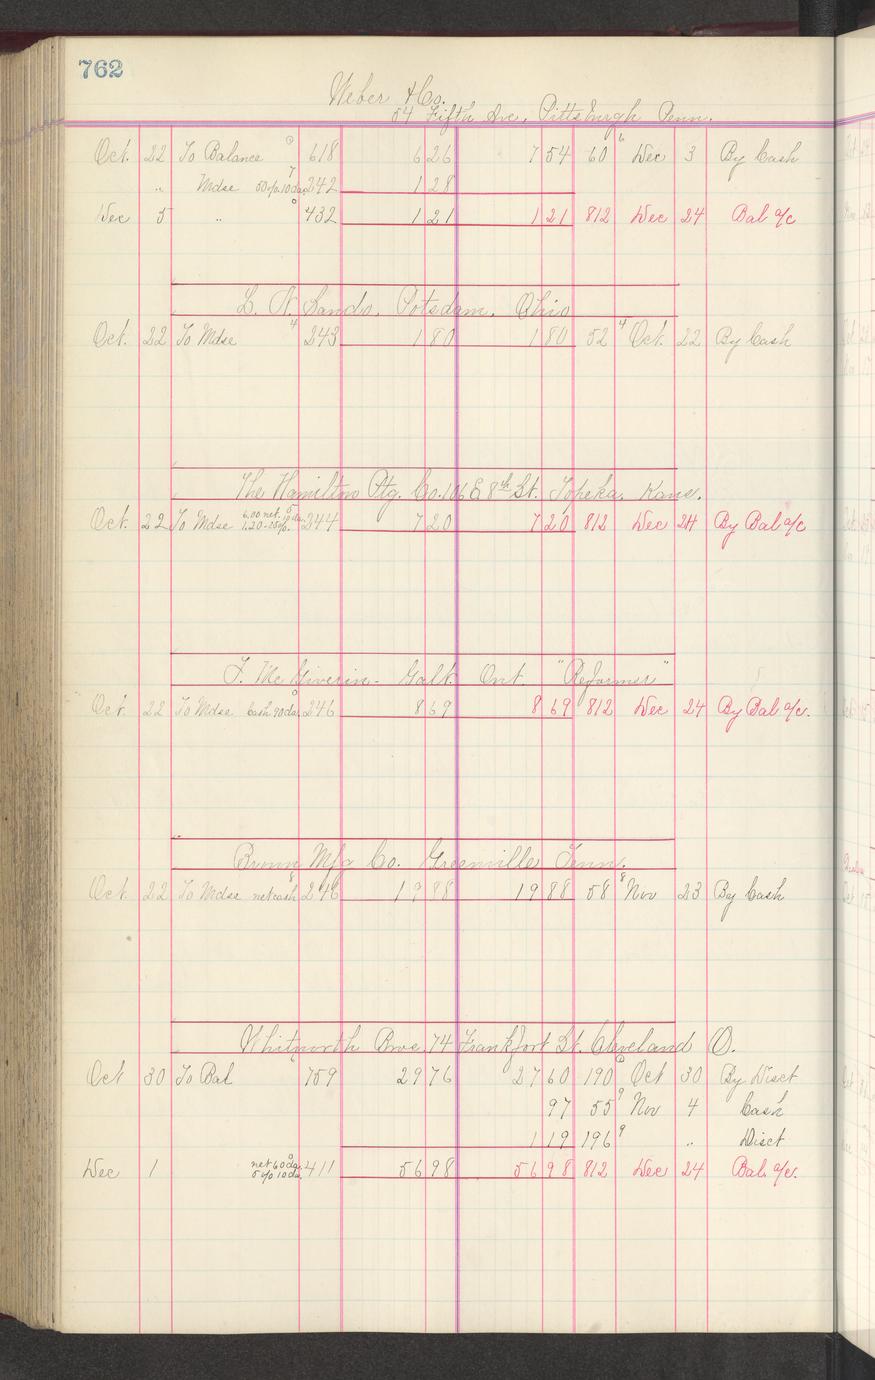 762
Weber & Co.
54 Fifth Ave, Pittsburgh Penn.
Oct. 22 To Balance 618 6 26 7 54 60 6 Dec 3 By Cash
" Mdse 50% 10 da. 7 242 1 28
Dec 5 " 432 1 21 1 21 812 Dec 24 Bal a/c
L. N. Sands, Potsdam, Ohio
Oct. 22 To Mdse 4 243 1 80 1 80 52 4 Oct. 22 By Cash
The Hamilton Ptg. Co. 106 E 8th St. Topeka, Kans.
Oct. 22 To Mdse 6.00 net. 10 da. 1.20-25%. 244 7 20 7 20 812 Dec 24 By Bal a/c
F. McGiverin - Galt. Ont. "Reformer"
Oct. 22 To Mdse Cash 90 da. 246 8 69 8 69 812 Dec 24 By Bal a/c.
Brown Mfg Co. Greenville Tenn.
Oct 22 To Mdse net cash 8 246 19 88 19 88 58 8 Nov 23 By Cash
Whitworth Bros. 74 Frankfort St. Cleveland O.
Oct 30 To Bal 759 29 76 27 60 190 Oct 30 By Disct
97 55 9 Nov 4 Cash
1 19 196 9 " Disct
Dec 1 net 60 da. 5% 10 da. 411 56 98 56 98 812 Dec 24 Bal. a/c.